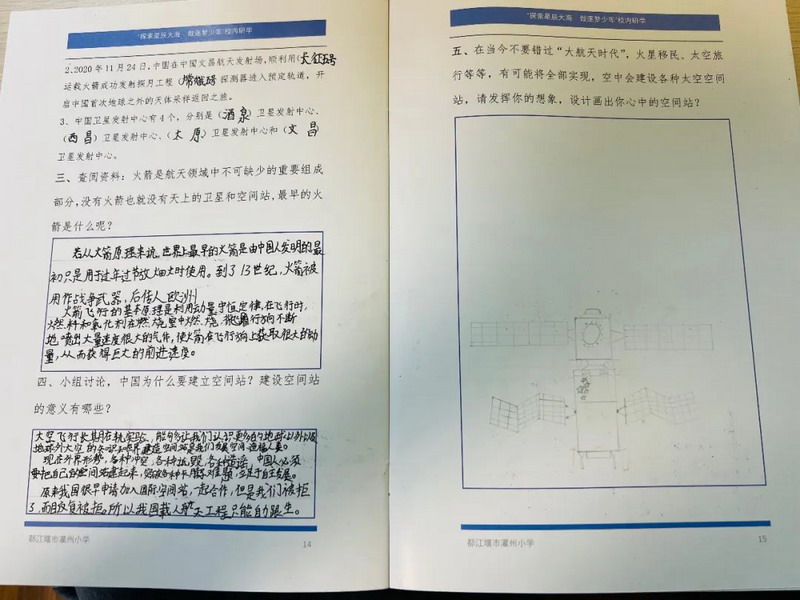 “探索星辰大海 做逐梦少年”校内研学
2.2020年11月24日,中国在中国文昌航天发射场,顺利用(长征五号)
运载火箭成功发射探月工程(嫦娥五号)探测器进入预定轨道,开
启中国首次地球之外的天体采样返回之旅。
3、中国卫星发射中心有4个,分别是(酒泉)卫星发射中心、
(西昌)卫星发射中心、(太原)卫星发射中心和(文昌)
卫星发射中心。
三、查阅资料:火箭是航天领域中不可缺少的重要组成
部分,没有火箭也就没有天上的卫星和空间站,最早的火
箭是什么呢?
若从火箭原理来说,世界上最早的火箭是由中国人发明的最
初只是用于过年过节放烟火时使用。到了13世纪,火箭被
用作战争武器,后传入欧洲
火箭飞行的基本原理是利用动量守恒定律,在飞行时,
燃料和氧化剂在燃烧室中燃烧,行方向不断
地喷出大量速度很大的气体,使火箭在飞行方向上获取很大的动
量,从而获得巨大的前进速度。
四、小组讨论,中国为什么要建立空间站?建设空间站
的意义有哪些?
太空飞行长期在轨实验,能够让我们认识更多的地球以外
地球外太空的
现在外界形势,各种中国人必须
要把自己的空间站建起来,自主发展。
原来我国很早申请加入国际空间站,一起合作,但是我们被拒
了,而且反复被拒。所以我国载人航天工程只能自强生。
都江堰市灌州小学
14
“探索星辰大海 做逐梦少年”校内研学
五、在当今不要错过“大航天时代”,火星移民、太空旅
行等等,有可能将全部实现,空中会建设各种太空空间
站,请发挥你的想象,设计画出你心中的空间站?
都江堰市灌州小学
15